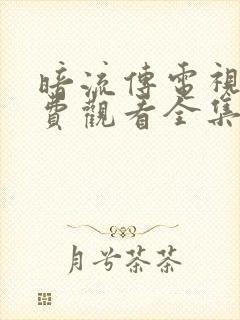 暗流傳電視
費觀看全集
月兮茶茶